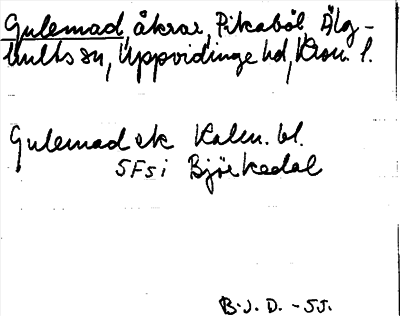 Gulemad, åkrar, Pikaböl, Älg-
hults sn, Uppvidinge hd, Kron. l.
Gulemad ek Kalm. bl.
SFSi Björkedal
B.J.D. -55.